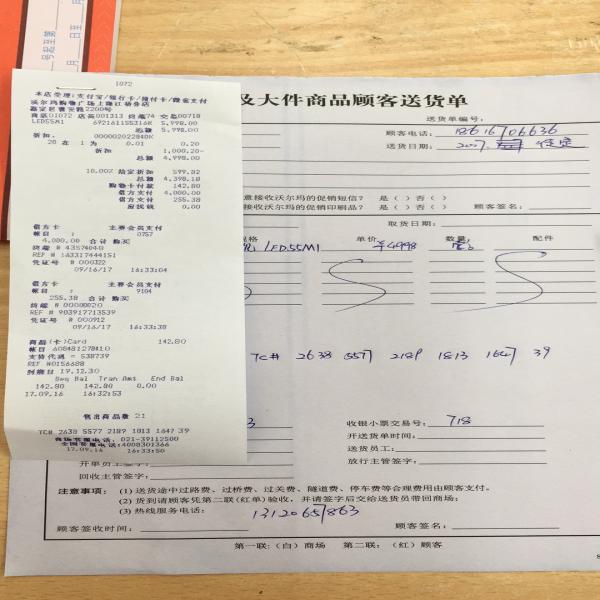 1072
本店受理:支付宝/银行卡/预付卡/微雀支付
沃尔玛购物广场上海江桥分店
嘉定区曹安路2200号
商店01072 店员001313 终端74 交易00718
LED55M1 692161155316K 5,998.00
总额 5,998.00
折扣. 000002022840K
20 在 1 为 0.01 0.20
折扣 1,000.20-
总额 4,998.00
10.00% 给定折扣 599.82
总额 4,398.18
购物卡付款 142.80
借方支付 4,000.00
借方支付 255.38
应找钱 0.00
借方卡 主赛会员支付
帐目 : 0757
4,000.00 合计 购买
终端 # 43574040
REF # 163317444151
凭证号 # 000322
09/16/17 16:33:04
借方卡 主赛会员支付
帐目 : 9104
255.38 合计 购买
终端 # 00000020
REF # 903917713539
凭证号 # 000912
09/16/17 16:33:38
商品(卡)Card 142.80
帐目 60848127841D
支持代码 = 538739
REF #0156688
到期日 :19.12.30
Beg Bal Tran Amt End Bal
142.80 142.80 0.00
17.09.16 16:32:53
售出商品数 21
TC# 2638 5577 2189 1813 1647 39
商场客服电话: 021-39112500
全国客服电话:4008301366
17.09.16 16:33:50
号起至第
月 日至
及大件商品顾客送货单
送货单编号:
顾客电话: 18616706636
送货日期: 2017.
意接收沃尔玛的促销短信? 是( )否( )
接收沃尔玛的促销印刷品? 是( )否( ) 顾客签名:
取货日期:
规格 单价 数量: 配件
LED55M1 ¥4998
TC# 2638 5577 2189 1813 1647 39
收银小票交易号: 718
开送货单时间:
送货员工:
开单员工签字: 放行主管签字:
回收主管签字:
注意事项: (1) 送货途中过路费、过桥费、过关费、隧道费、停车费等合理费用由顾客支付。
(2) 货到请顾客凭第二联(红单)验收，并请签字后交给送货员带回商场;
(3) 热线服务电话: 13120657863
顾客签收时间: 顾客签名:
第一联:(白)商场 第二联:(红)顾客